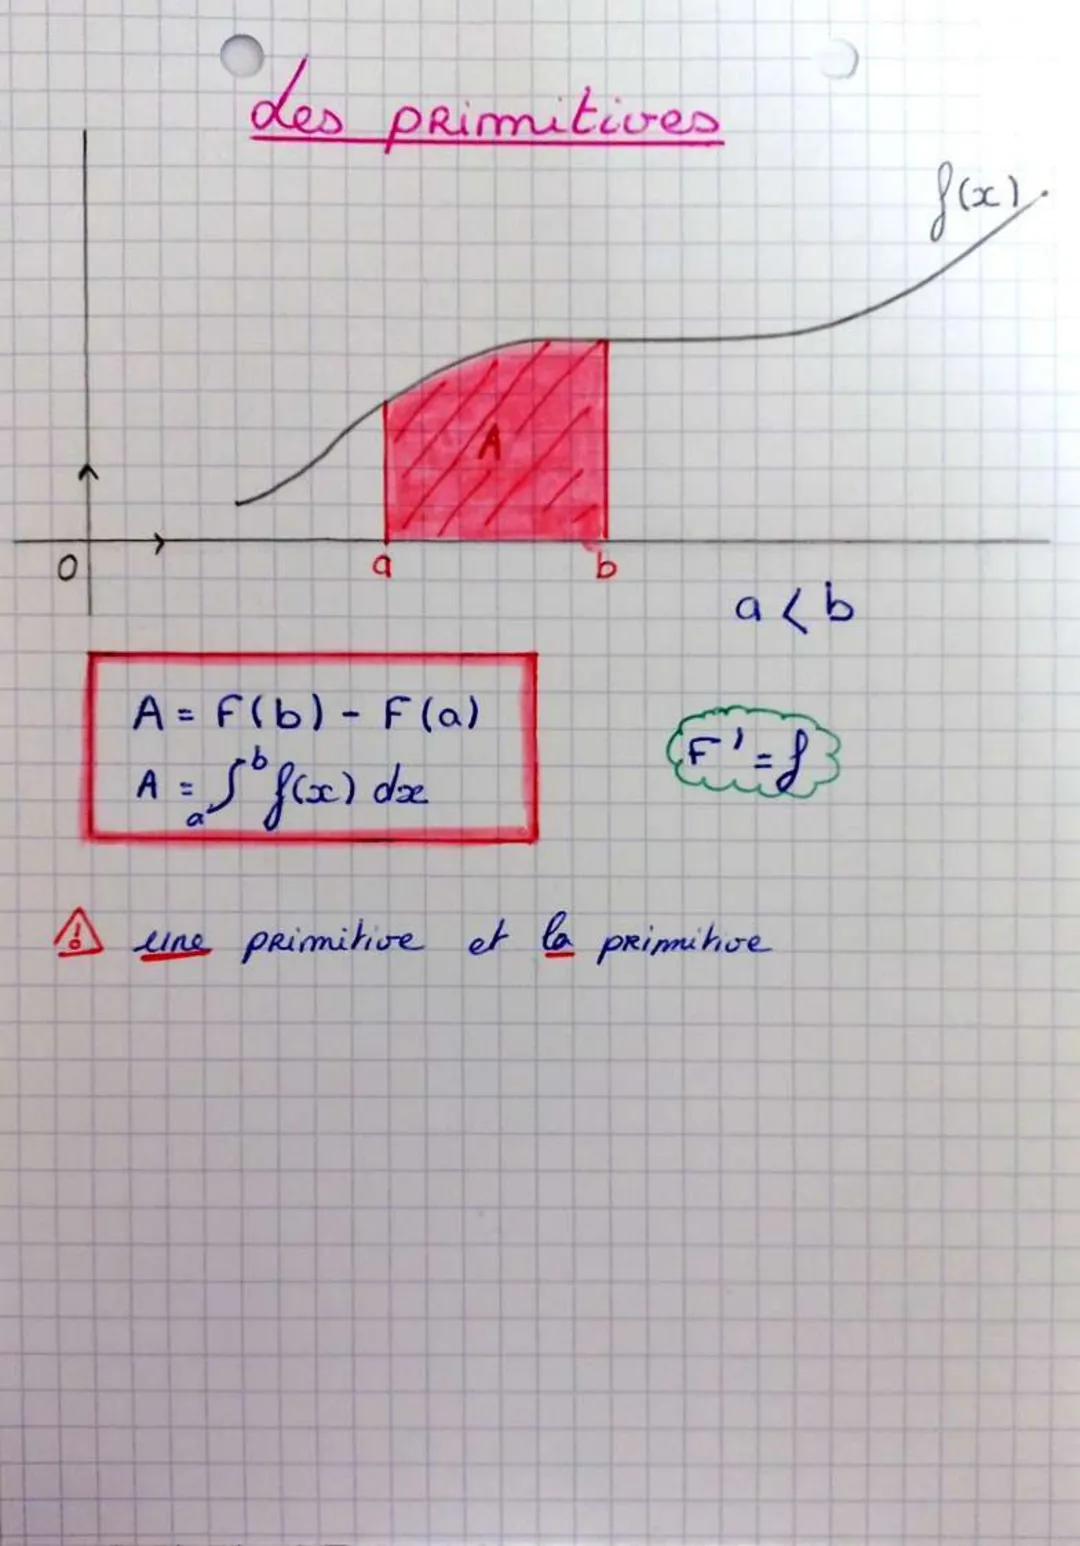 Les primitives
f(x)
A
O
a
b
a < b
A = F(b) - F(a)
A = ∫ₐᵇ f(x) dx
F' = f
⚠ une primitive et la primitive